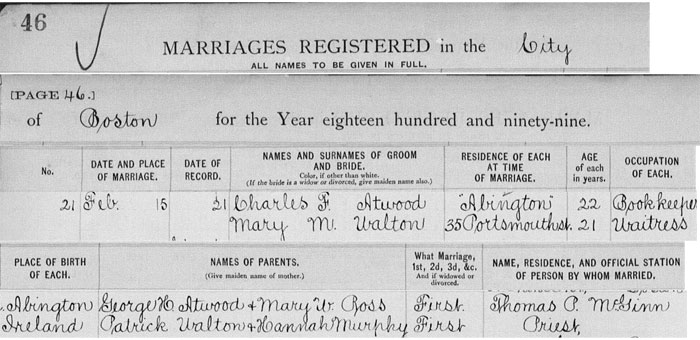 46
MARRIAGES REGISTERED in the City
ALL NAMES TO BE GIVEN IN FULL.
[PAGE 46.]
of Boston for the Year eighteen hundred and ninety-nine.
No. DATE AND PLACE OF MARRIAGE. DATE OF RECORD. NAMES AND SURNAMES OF GROOM AND BRIDE. Color, if other than white. (If the bride is a widow or divorced, give maiden name also.) RESIDENCE OF EACH AT TIME OF MARRIAGE. AGE of each in years. OCCUPATION OF EACH.
21 Feb. 15 21 Charles F. Atwood "Abington" 22 Bookkeeper
Mary M. Walton 35 Portsmouth st. 21 Waitress
PLACE OF BIRTH OF EACH. NAMES OF PARENTS. (Give maiden name of mother.) What Marriage, 1st, 2d, 3d, &c. And if widowed or divorced. NAME, RESIDENCE, AND OFFICIAL STATION OF PERSON BY WHOM MARRIED.
Abington George H. Atwood + Mary W. Ross First. Thomas P. McGinn
Ireland Patrick Walton + Hannah Murphy First Priest,